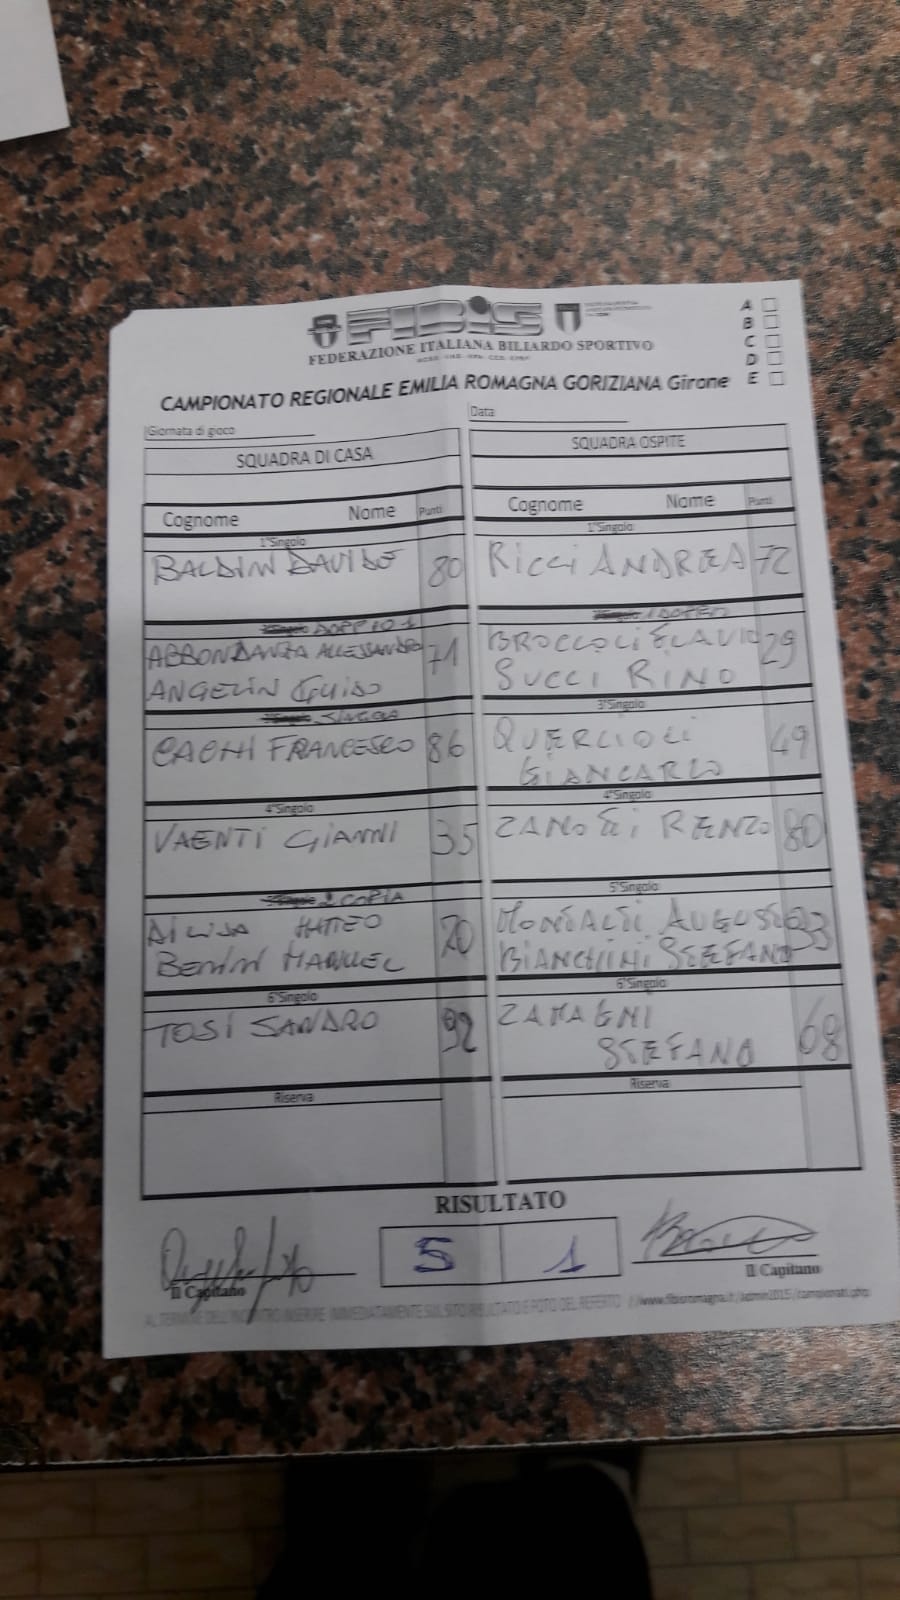 FIBIS
FEDERAZIONE ITALIANA BILIARDO SPORTIVO
A
B
C
D
E
CAMPIONATO REGIONALE EMILIA ROMAGNA GORIZIANA Girone
Giornata di gioco
Data
SQUADRA DI CASA
SQUADRA OSPITE
Cognome Nome Punti
Cognome Nome Punti
1°Singolo
1°Singolo
BALDIN DAVIDE 80
RICCI ANDREA 72
DOPPIO 1
ABBONDANZA ALLESSANDRO 71
ANGELIN GUIDO
BROCCOLI FLAVIO 29
SUCCI RINO
SINGOLO
3°Singolo
CACHI FRANCESCO 86
QUERCIOLI 49
GIANCARLO
4°Singolo
4°Singolo
VAENTI GIANNI 35
RENZO 80
2 COPIA
5°Singolo
MATTEO 70
BENINI MANUEL
MONTALTI 33
BIANCHINI STEFANO
6°Singolo
6°Singolo
TOSI SANDRO 92
ZAMAGNI 68
STEFANO
Riserva
Riserva
RISULTATO
5 1
Il Capitano
Il Capitano
AL TERMINE DELL'INCONTRO INSERIRE IMMEDIATAMENTE SUL SITO RISULTATO E FOTO DEL REFERTO //www.fibisromagna.it/admin2015/campionati.php